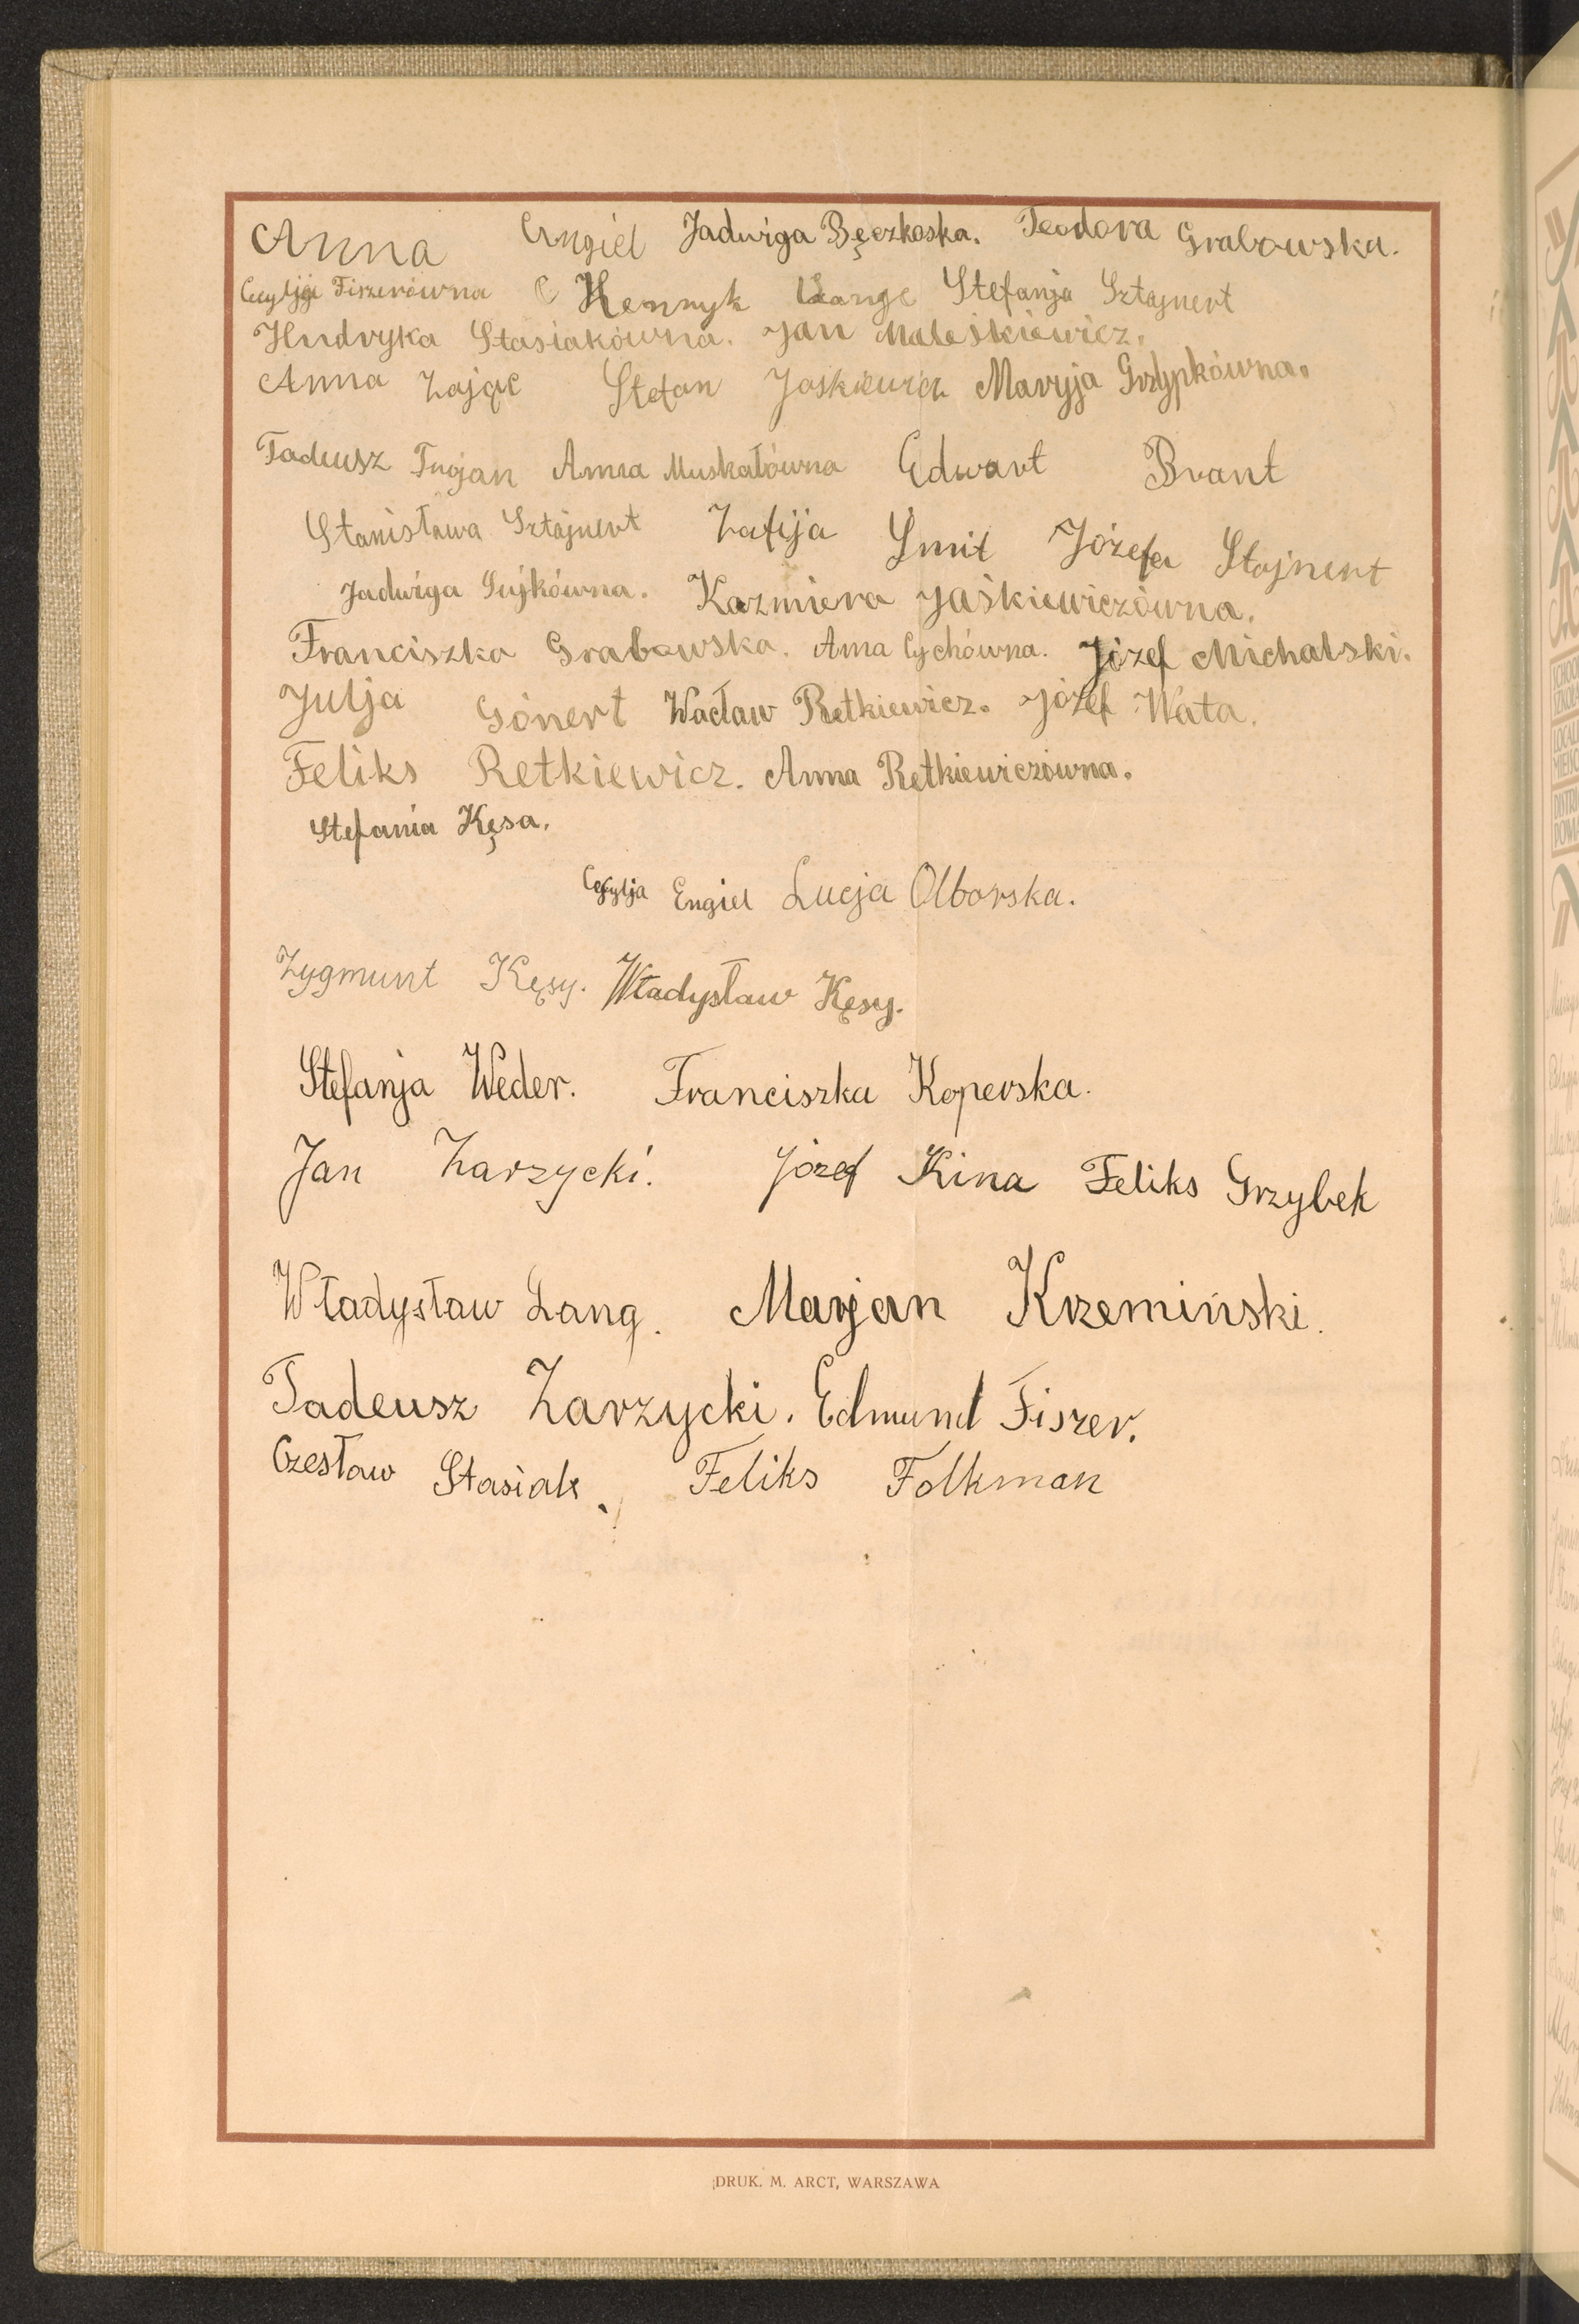 Anna Engiel Jadwiga Bęczkoska. Teodora Grabowska.
Cecylja Fiszerówna Henryk Lange Stefanja Sztajnert
Hendryka Stasiakówna. Jan Maleśkiewicz.
Anna Zając Stefan Jaskiewicz Maryja Grzypkówna.
Tadeusz Trojan Anna Muskałówna Edwart Brant
Stanisława Sztajnert Zofija Śmit Józefa Stajnert
Jadwiga Sujkówna. Kazmiera Jaśkiewiczówna.
Franciszka Grabowska. Anna Cychówna. Józef Michalski.
Julja Gönert Wacław Retkiewicz. Józef Wata.
Feliks Retkiewicz. Anna Retkiewiczówna.
Stefania Kęsa.
Cecylja Engiel Lucja Olborska.
Zygmunt Kęsy. Władysław Kęsy.
Stefanja Weder. Franciszka Koperska.
Jan Zarzycki. Józef Kina Feliks Grzybek
Władysław Lang. Marjan Krzemiński.
Tadeusz Zarzycki. Edmund Fiszer.
Czesław Stasiak. Feliks Folkman
DRUK. M. ARCT, WARSZAWA